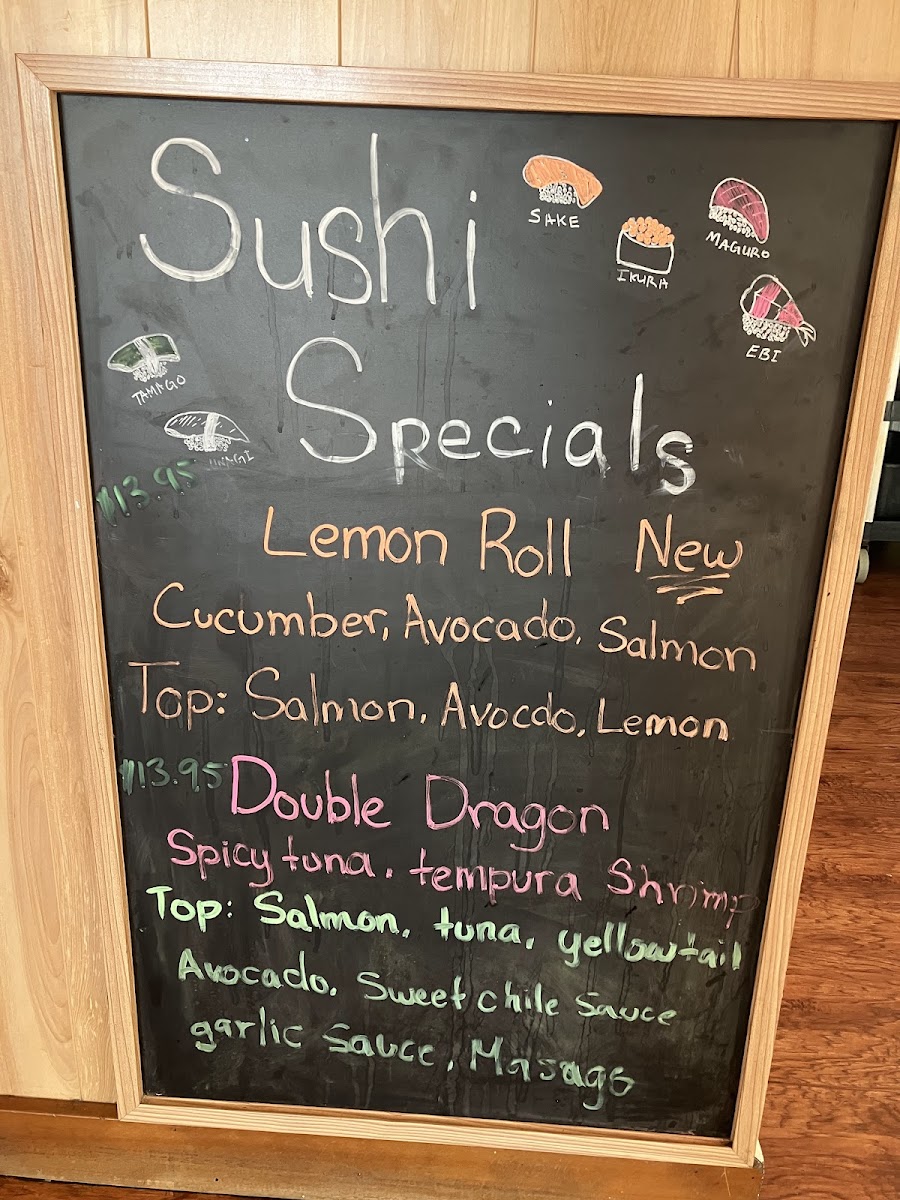 Sushi
SAKE
IKURA
MAGURO
EBI
TAMAGO
UNAGI
Specials
$13.95
Lemon Roll New
Cucumber, Avocado, Salmon
Top: Salmon, Avocdo, Lemon
$13.95
Double Dragon
Spicy tuna, tempura Shrimp
Top: Salmon, tuna, yellowtail
Avocado, Sweet chile Sauce
garlic Sauce, Masago